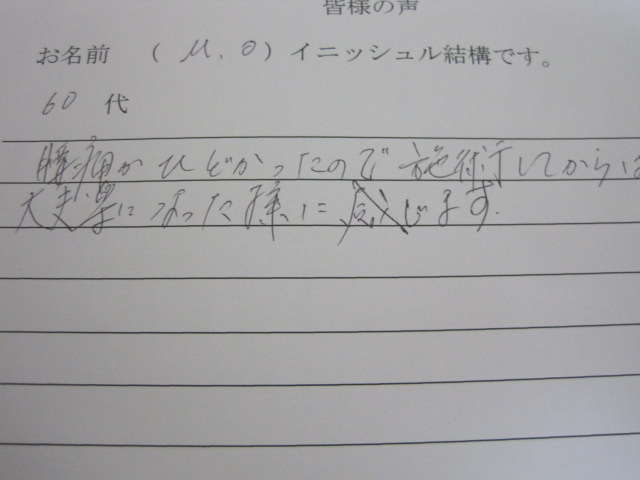 皆様の声
お名前 （ M.O ）イニッシュル結構です。
60 代
腰痛がひどかったので施術してからは
大丈楽になった様に感じます.